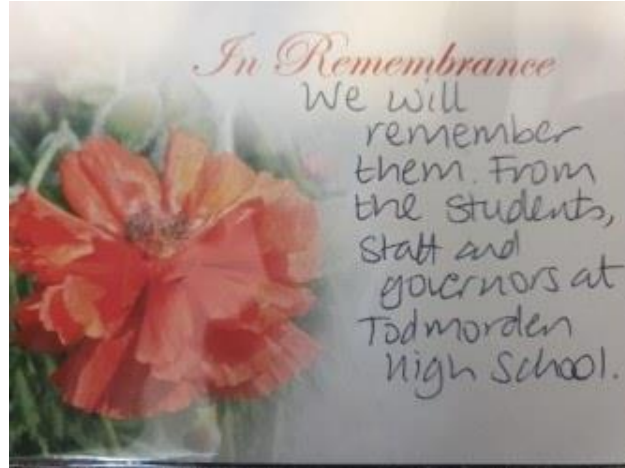 In Remembrance
We will
remember
them. From
the students,
staff and
governors at
Todmorden
High School.